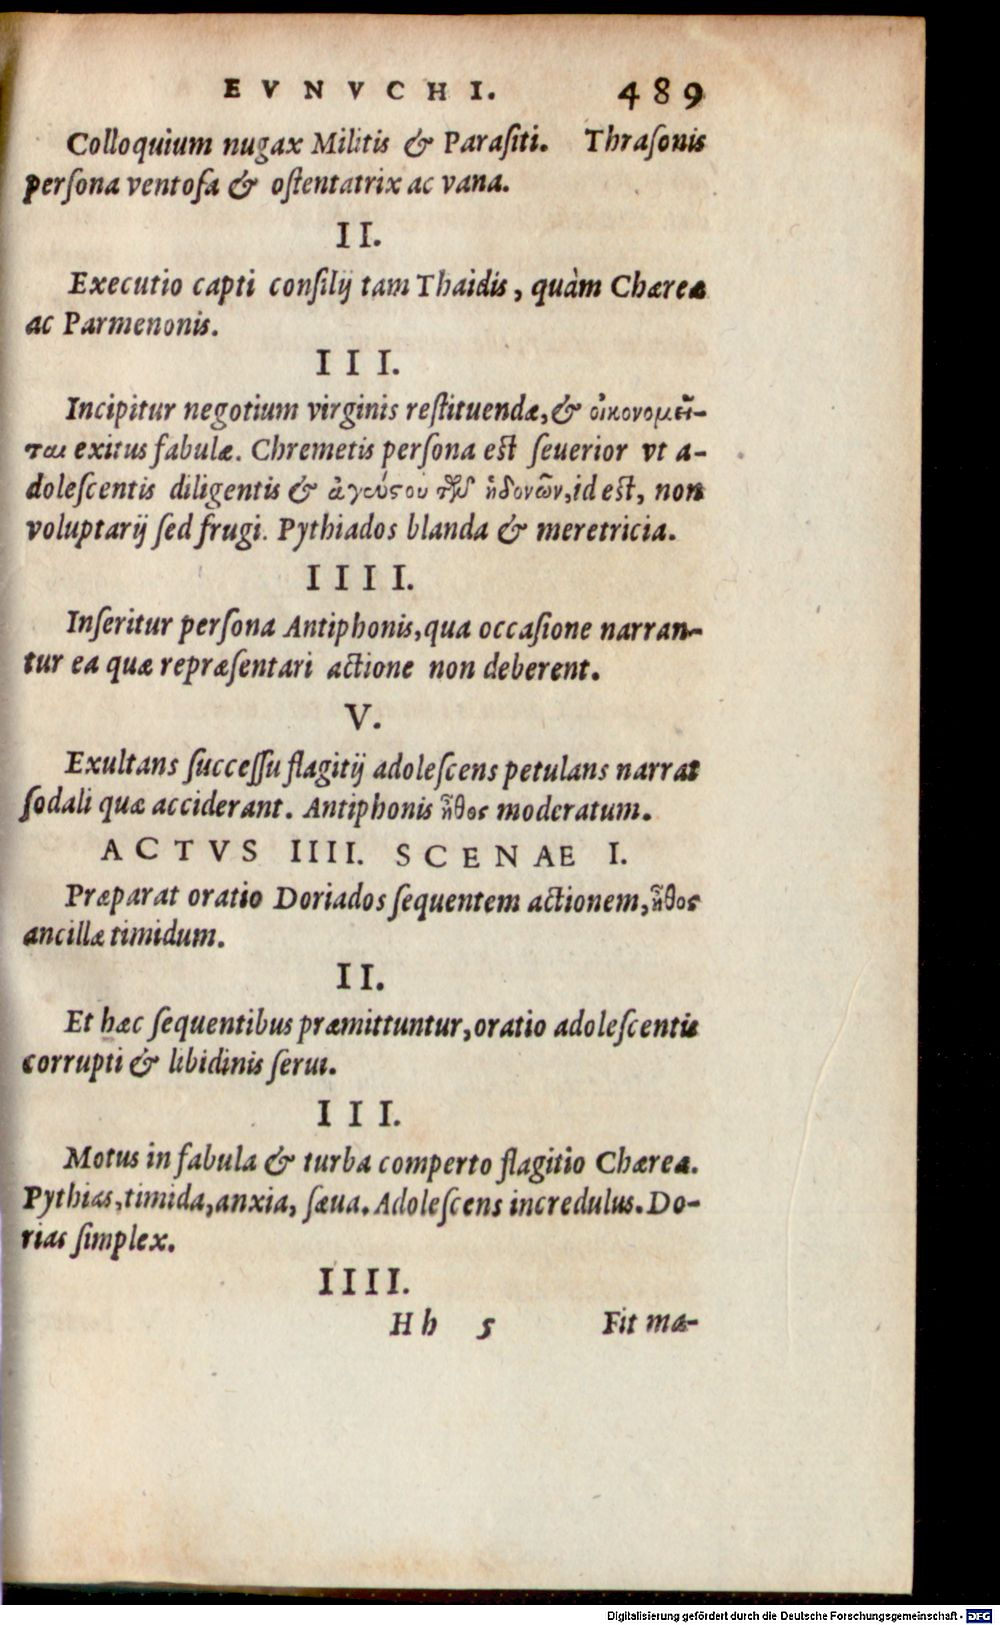 EVNVCHI. 489
Colloquium nugax Militis & Parasiti. Thrasonis
persona ventosa & ostentatrix ac vana.
II.
Executio capti consilij tam Thaidis, quàm Chæreæ
ac Parmenonis.
III.
Incipitur negotium virginis restituendæ, & οἰκονομεῖ-
ται exitus fabulæ. Chremetis persona est seuerior vt a-
dolescentis diligentis & ἀγεύστου τῶν ἡδονῶν, id est, non
voluptarij sed frugi. Pythiados blanda & meretricia.
IIII.
Inseritur persona Antiphonis, qua occasione narran-
tur ea quæ repræsentari actione non deberent.
V.
Exultans successu flagitij adolescens petulans narrat
sodali quæ acciderant. Antiphonis ἦθος moderatum.
ACTVS IIII. SCENAE I.
Præparat oratio Doriados sequentem actionem, ἦθος
ancillæ timidum.
II.
Et hæc sequentibus præmittuntur, oratio adolescentis
corrupti & libidinis serui.
III.
Motus in fabula & turba comperto flagitio Chæreæ.
Pythias, timida, anxia, sæua. Adolescens incredulus. Do-
rias simplex.
IIII.
Hh 5 Fit ma-
Digitalisierung gefördert durch die Deutsche Forschungsgemeinschaft - DFG